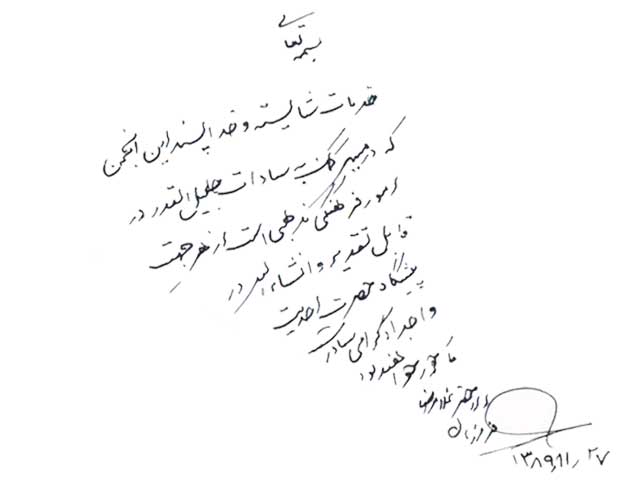 بسمه تعالی
خدمات شایسته و خداپسند این انجمن
که در مسیر کمک به سادات جلیل القدر در
امور فرهنگی مذهبی است از هر جهت
قابل تقدیر و انشاءالله در
پیشگاه حضرت احدیت
و اجداد گرامی سادات
ماجور خواهند بود
احقر غلامرضا
فیروزیان
۱۳۸۹/۱۱/۲۷